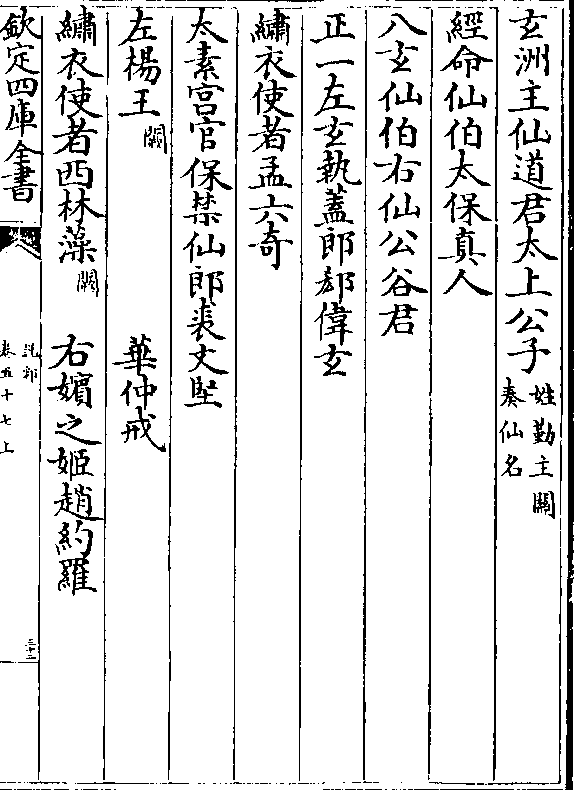 玄洲主仙道君太上公子姓勤主闕奏仙名
經命仙伯太保真人
八玄仙伯右仙公谷君
正一左玄執蓋郎郄偉玄
繡衣使者孟六奇
太素宮官保禁仙郎裴文堅
左楊王闕 華仲戒
繡衣使者西林藻闕 右嬪之姬趙約羅
欽定四庫全書
說郛
卷五十七上
三十二